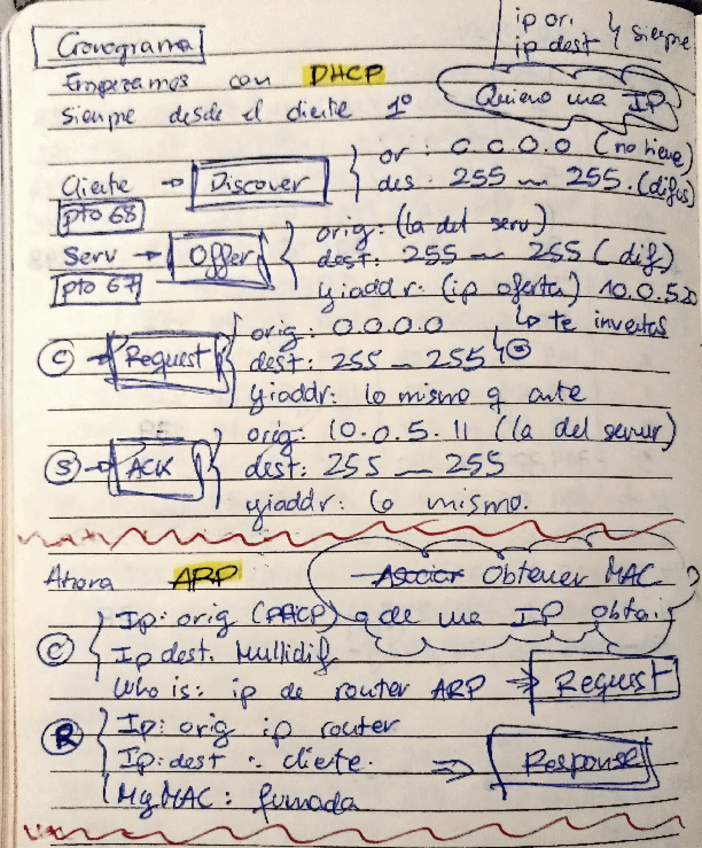 Cronograma
ip ori.
ip dest } siempre
Empezamos con DHCP
siempre desde el cliente 1º
Quiero una IP
Cliente → Discover { or : 0.0.0.0 (no tiene)
des: 255 — 255. (difus)
pto 68
Serv → Offer { orig: (la del serv)
dest: 255 — 255 (dif)
pto 67
yiaddr: (ip oferta) 10.0.5.20
↳ te inventas
C → Request { orig: 0.0.0.0
dest: 255 — 255
yiaddr: lo mismo q ante
S → ACK { orig: 10.0.5.11 (la del server)
dest: 255 — 255
yiaddr: lo mismo.
Ahora ARP
Asociar Obtener MAC
de una IP
C { Ip: orig (DHCP)
Ip dest. Multidif
Who is: ip de router ARP ⇒ Request
R { Ip: orig ip router
Ip: dest : cliente. ⇒ Response
MyMAC: fumada